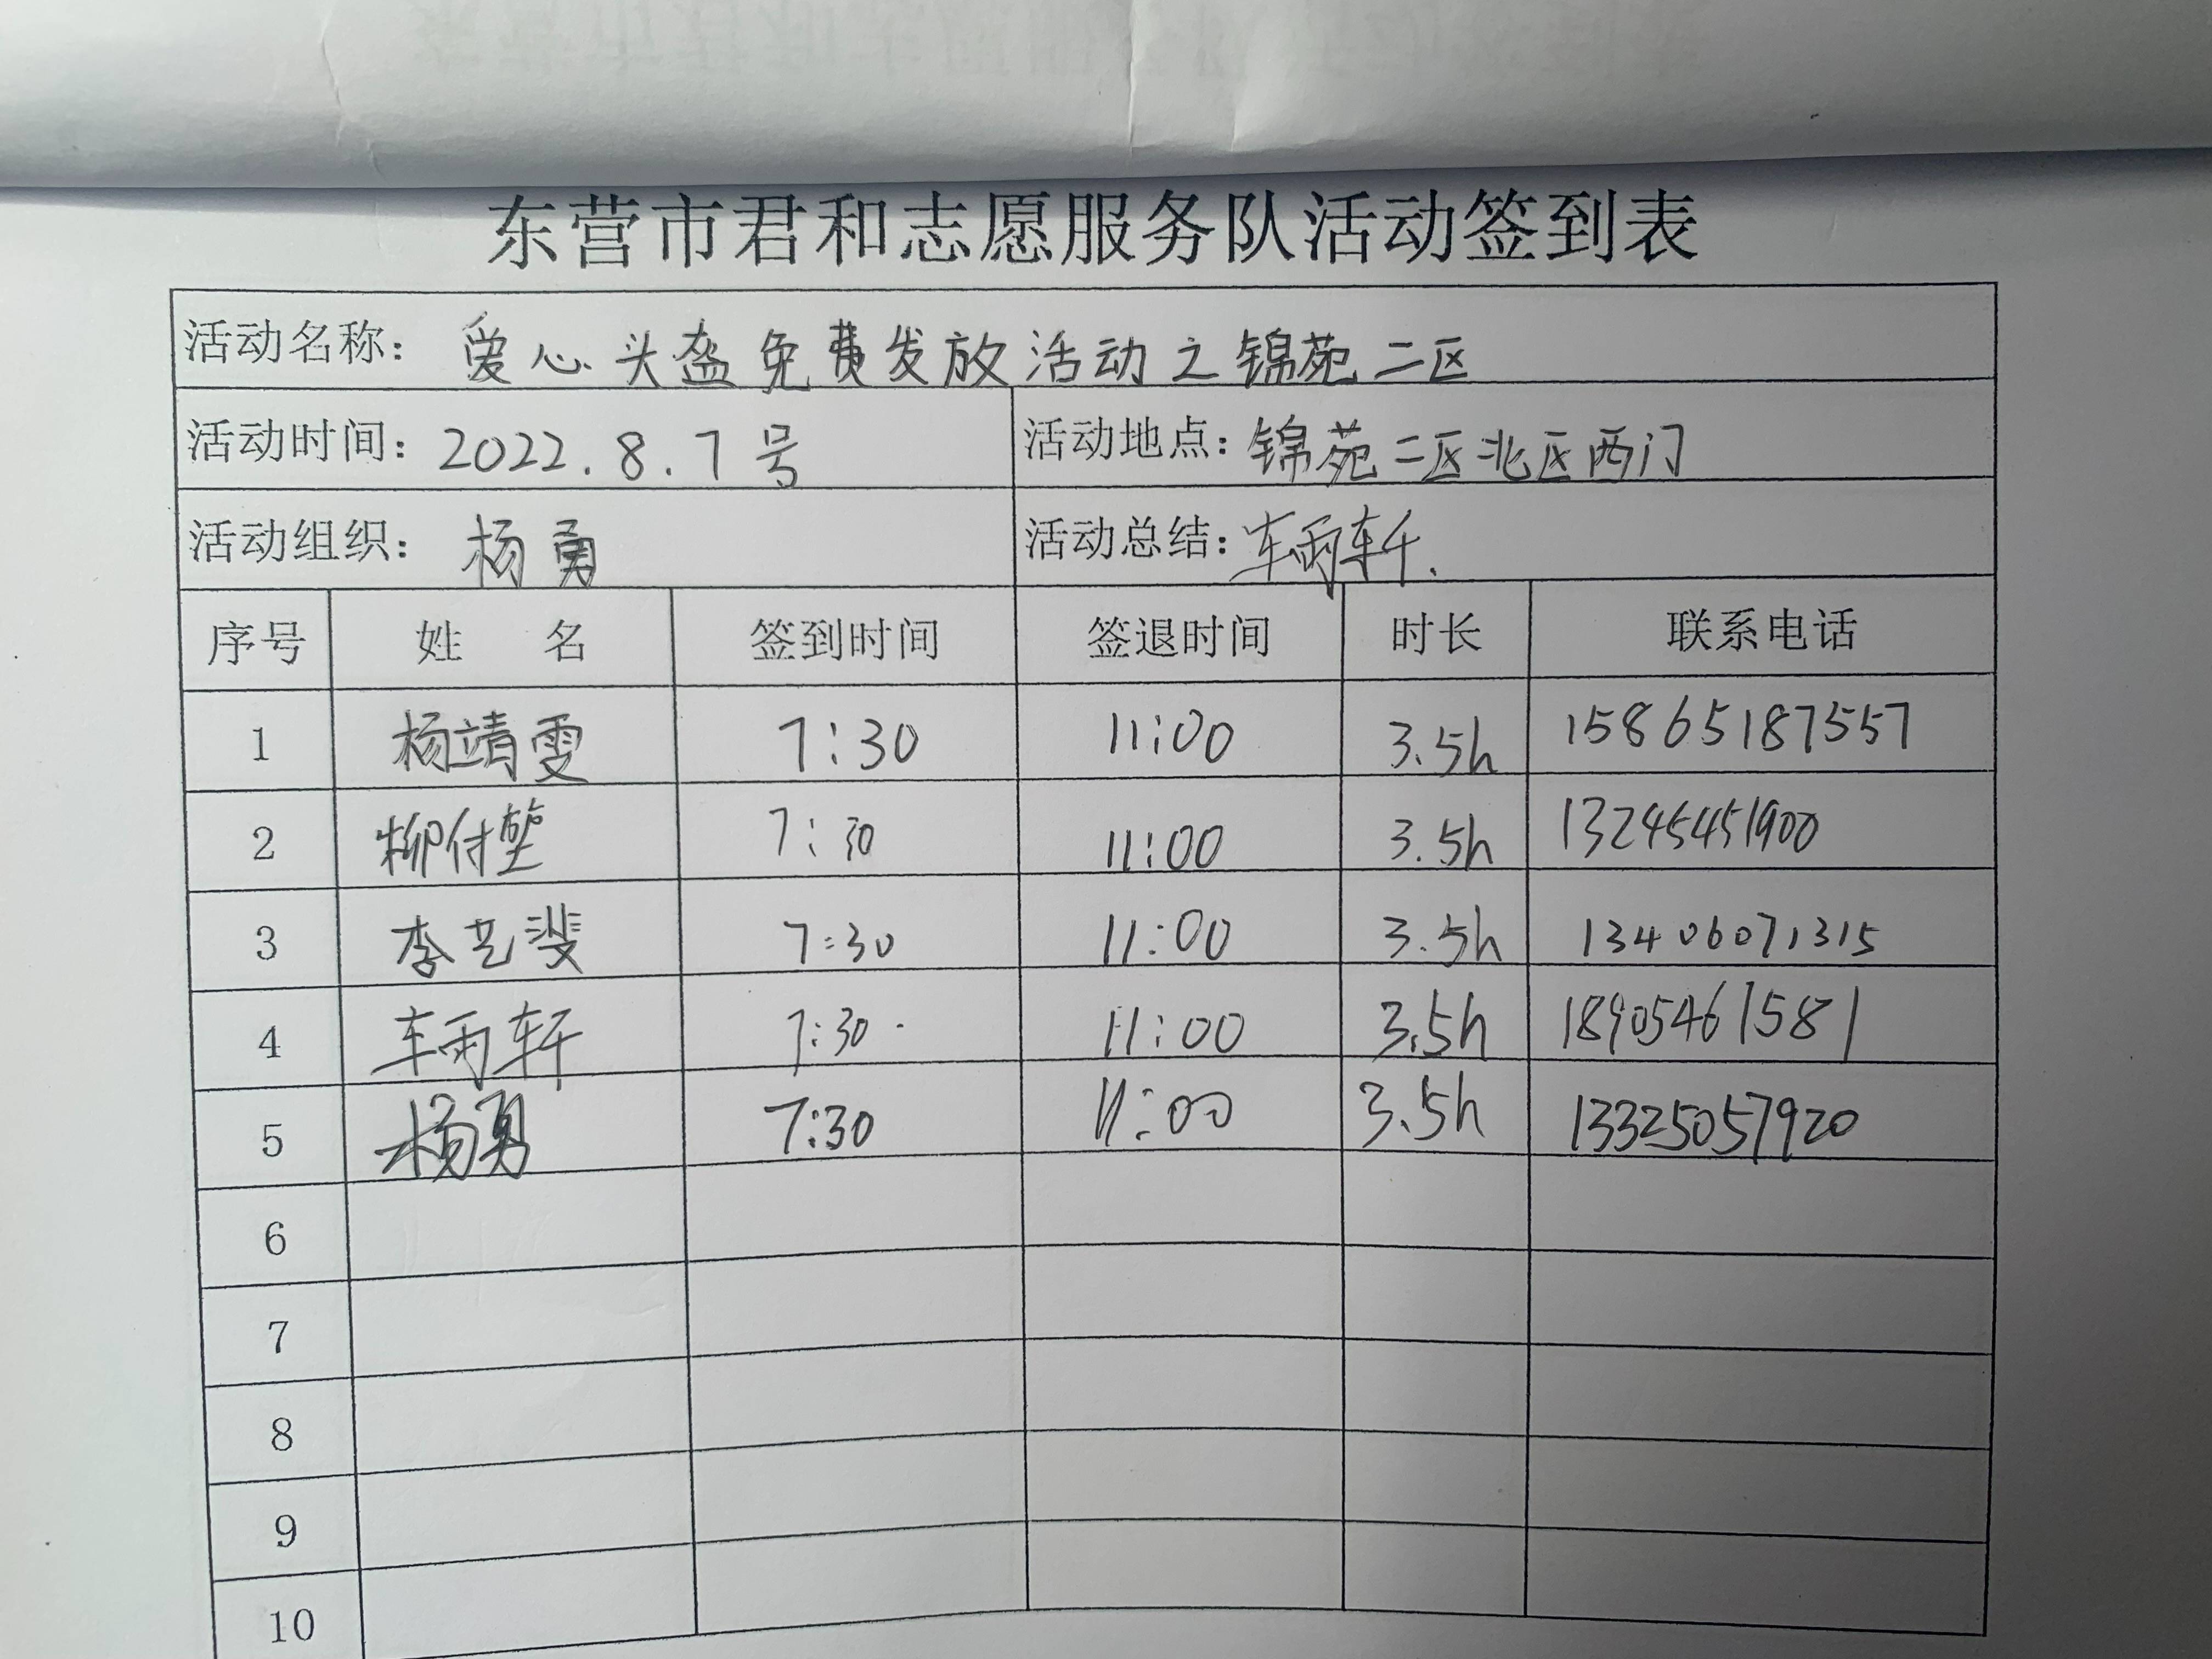 东营市君和志愿服务队活动签到表
活动名称: 爱心头盔免费发放活动之锦苑二区
活动时间: 2022.8.7号 活动地点: 锦苑二区北区西门
活动组织: 杨勇 活动总结: 车雨轩.
序号 姓 名 签到时间 签退时间 时长 联系电话
1 杨靖雯 7:30 11:00 3.5h 15865187557
2 柳付 7:30 11:00 3.5h 13245451900
3 李艺斐 7:30 11:00 3.5h 13406071315
4 车雨轩 7:30 11:00 3.5h 18905461581
5 杨勇 7:30 11:00 3.5h 13325057920
6
7
8
9
10